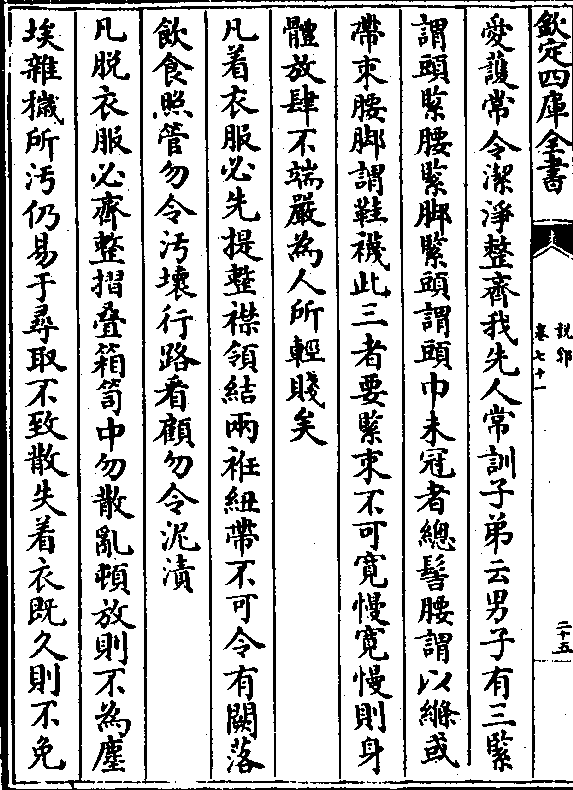 欽定四庫全書
說郛
卷七十一
二十五
愛護常令潔淨整齊我先人常訓子弟云男子有三緊
謂頭緊腰緊脚緊頭謂頭巾未冠者總髻腰謂以縧或
帶束腰脚謂鞋襪此三者要緊束不可寛慢寛慢則身
體放肆不端嚴為人所輕賤矣
凡着衣服必先提整襟領結兩袵紐帶不可令有闕落
飲食照管勿令汚壞行路看顧勿令泥漬
凡脫衣服必齊整摺疊箱笥中勿散亂頓放則不為塵
埃雜穢所汚仍易于尋取不致散失着衣既久則不免